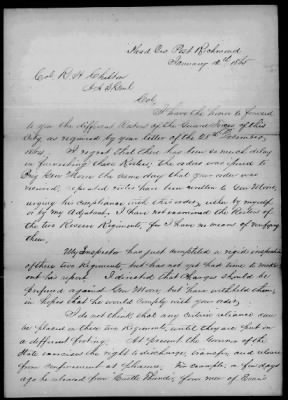 Head Qrs Post Richmond
January 12th 1865
Col. R. H. Chilton
A A I Genl
Col,
I have the honor to forward
to you the different Rosters of the Guard Forces of this
City as required by your letter of the 28th December,
1864. I regret that there has been so much delay
in furnishing these Rosters. The order was issued to
Brig Genl the same day that your order was
received, repeated notes have been written to Gen
urging his compliance with this order, either by myself
or by my Adjutant. I have not examined the Rosters of
the two Reserve Regiments, for I have no means of verifying
them.
My Inspector has just completed a rigid inspection
of these two Regiments, but has not yet had time to make
out his report. I directed that charges should be
prefered against Gen, but have withheld them,
in hopes that he would comply with your order.
I do not think, that any certain reliance can
be placed in these two Regiments, until they are put on
a different footing. At present the Governor of the
State exercises the right to discharge, transfer, and release
from confinement at pleasure. For example, a few days
ago he released from Castle Thunder, four men of